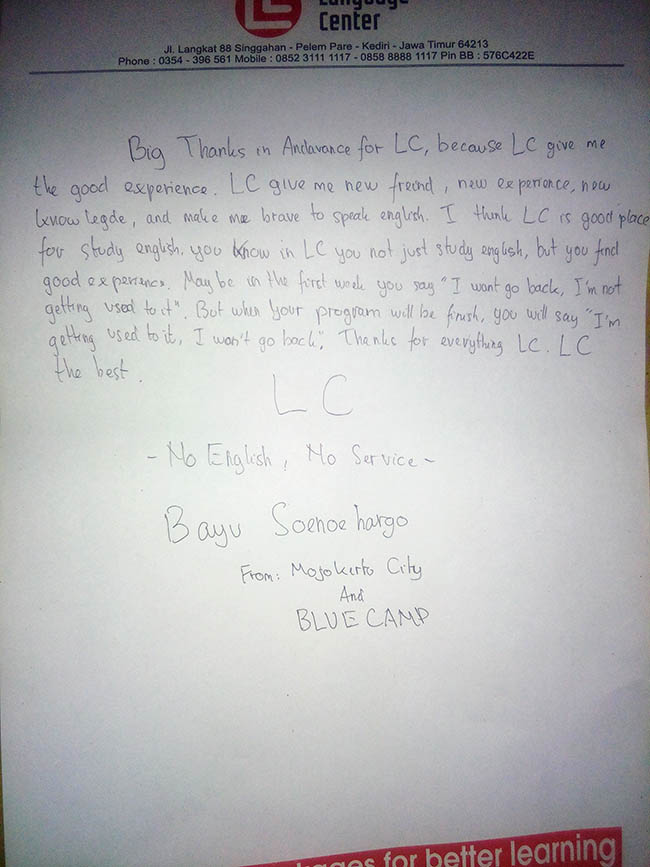 Language
Center
Jl. Langkat 88 Singgahan - Pelem Pare - Kediri - Jawa Timur 64213
Phone : 0354 - 396 561 Mobile : 0852 3111 1117 - 0858 8888 1117 Pin BB : 576C422E
Big Thanks in Andavance for LC, because LC give me
the good experience. LC give me new freind, new experience, new
knowlegde, and make me brave to speak english. I think LC is good place
for study english. you know in LC you not just study english, but you find
good experience. Maybe in the first week you say "I want go back, I'm not
getting used to it". But when your program will be finish, you will say "I'm
getting used to it, I won't go back". Thanks for everything LC. LC
the best.
LC
- No English, No Service -
Bayu Soenoehargo
From: Mojokerto City
And
BLUE CAMP
for better learning